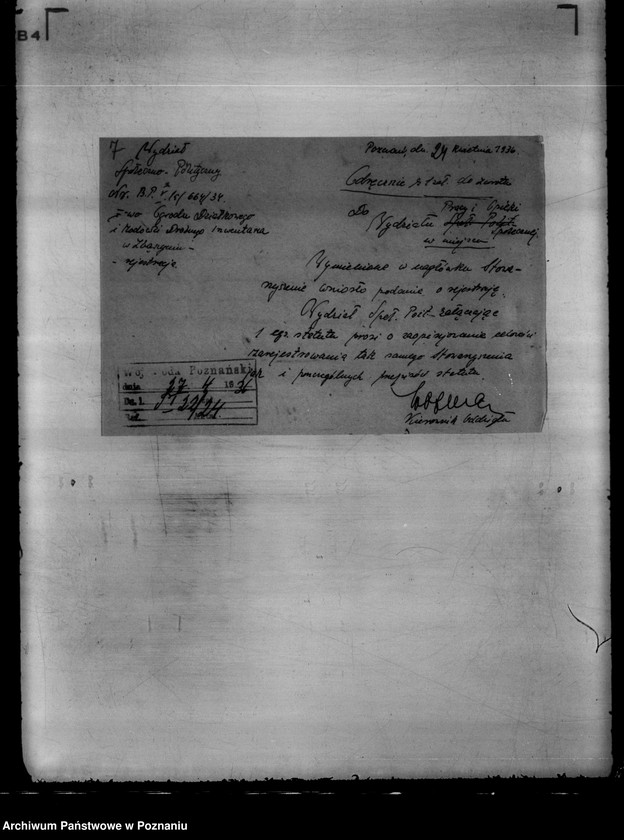 B4
7 Wydział
Społeczno-Polityczny
Nr. B.P. V/c/664/34
T-wo Ogrodu Działkowego
i Hodowli Drobnego Inwentarza
w Zbąszyniu -
- rejestracja
Poznań, dn. 24 kwietnia 1936.
Odręcznie z zał. do zwrotu
Do
Pracy i Opieki
Wydziału Społ. Polit. Społecznej
w miejscu
Wymienione w nagłówku Stowa-
rzyszenie wniosło podanie o rejestrację.
Wydział Społ. Polit. załączając
1 egz. statutu prosi o zaopinjowanie celowości
zarejestrowania tak samego Stowarzyszenia
jak i poszczególnych przepisów statutu.
Kierownik Oddziału
Wojewoda Poznański
dnia 27 4 1936
Archiwum Państwowe w Poznaniu